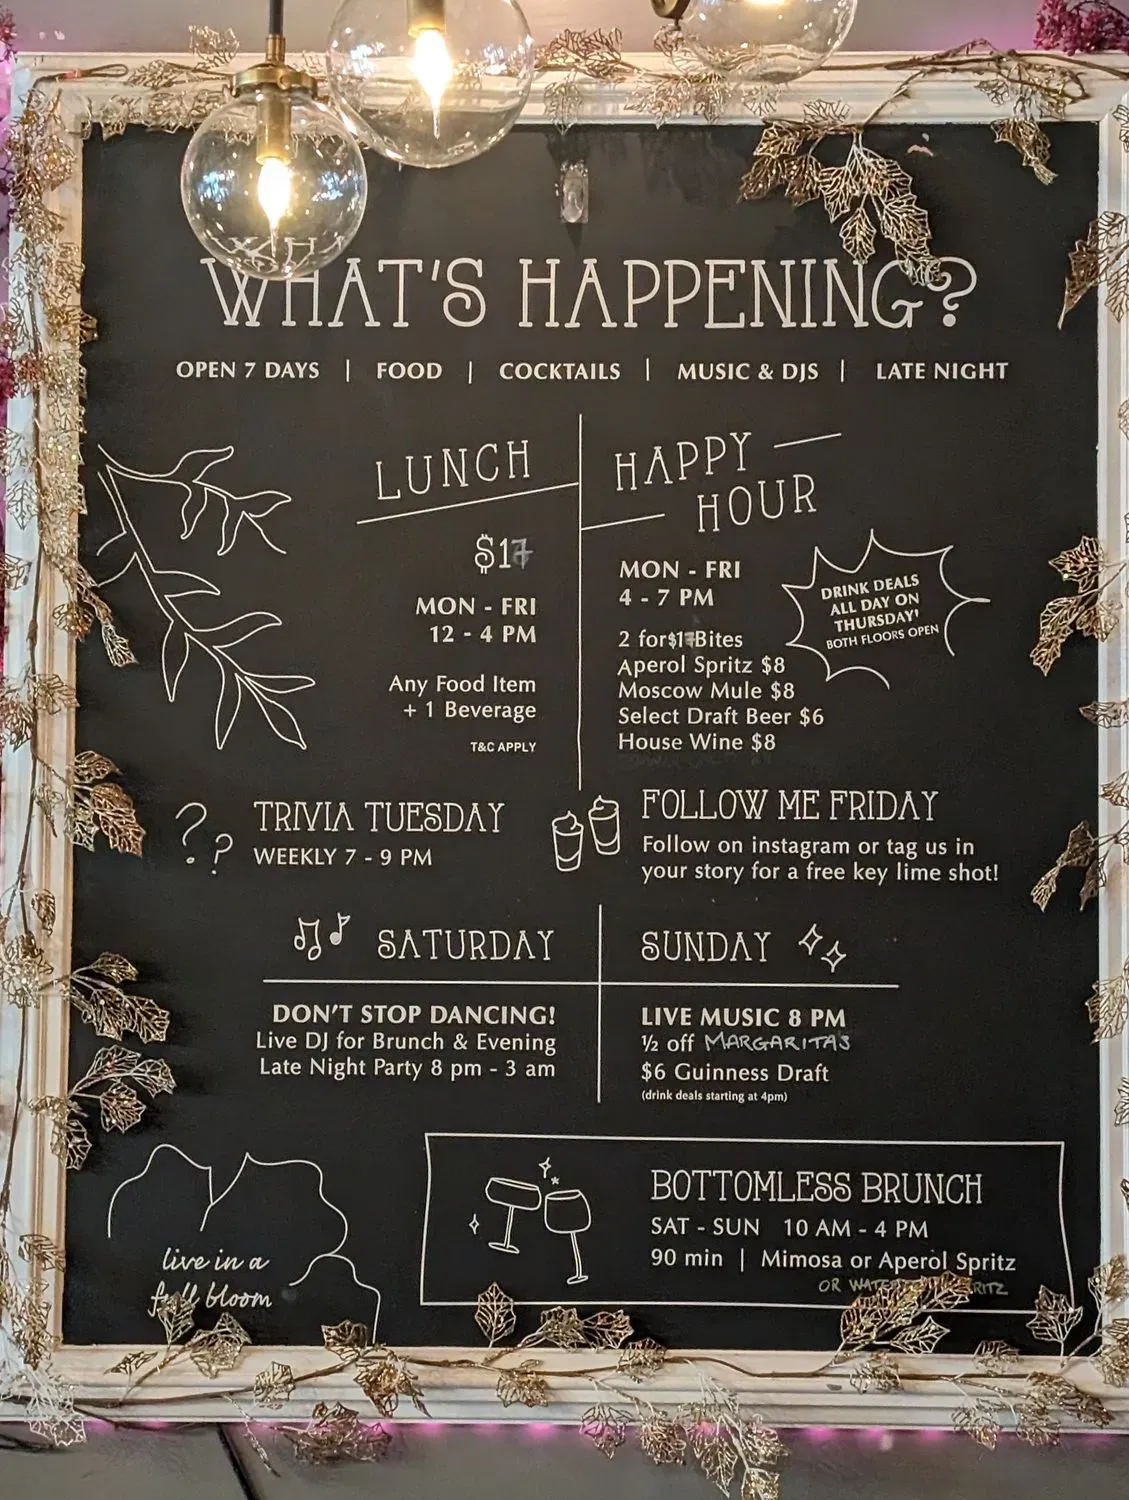 WHAT'S HAPPENING?
OPEN 7 DAYS | FOOD | COCKTAILS | MUSIC & DJS | LATE NIGHT
LUNCH
MON - FRI
12 - 4 PM
Any Food Item
+ 1 Beverage
T&C APPLY
HAPPY
HOUR
MON - FRI
4 - 7 PM
2 for Bites
Aperol Spritz $8
Moscow Mule $8
Select Draft Beer $6
House Wine $8
DRINK DEALS
ALL DAY ON
THURSDAY!
BOTH FLOORS OPEN
TRIVIA TUESDAY
WEEKLY 7 - 9 PM
FOLLOW ME FRIDAY
Follow on instagram or tag us in
your story for a free key lime shot!
SATURDAY
DON'T STOP DANCING!
Live DJ for Brunch & Evening
Late Night Party 8 pm - 3 am
SUNDAY
LIVE MUSIC 8 PM
½ off MARGARITAS
$6 Guinness Draft
(drink deals starting at 4pm)
live in a
full bloom
BOTTOMLESS BRUNCH
SAT - SUN 10 AM - 4 PM
90 min | Mimosa or Aperol Spritz
OR